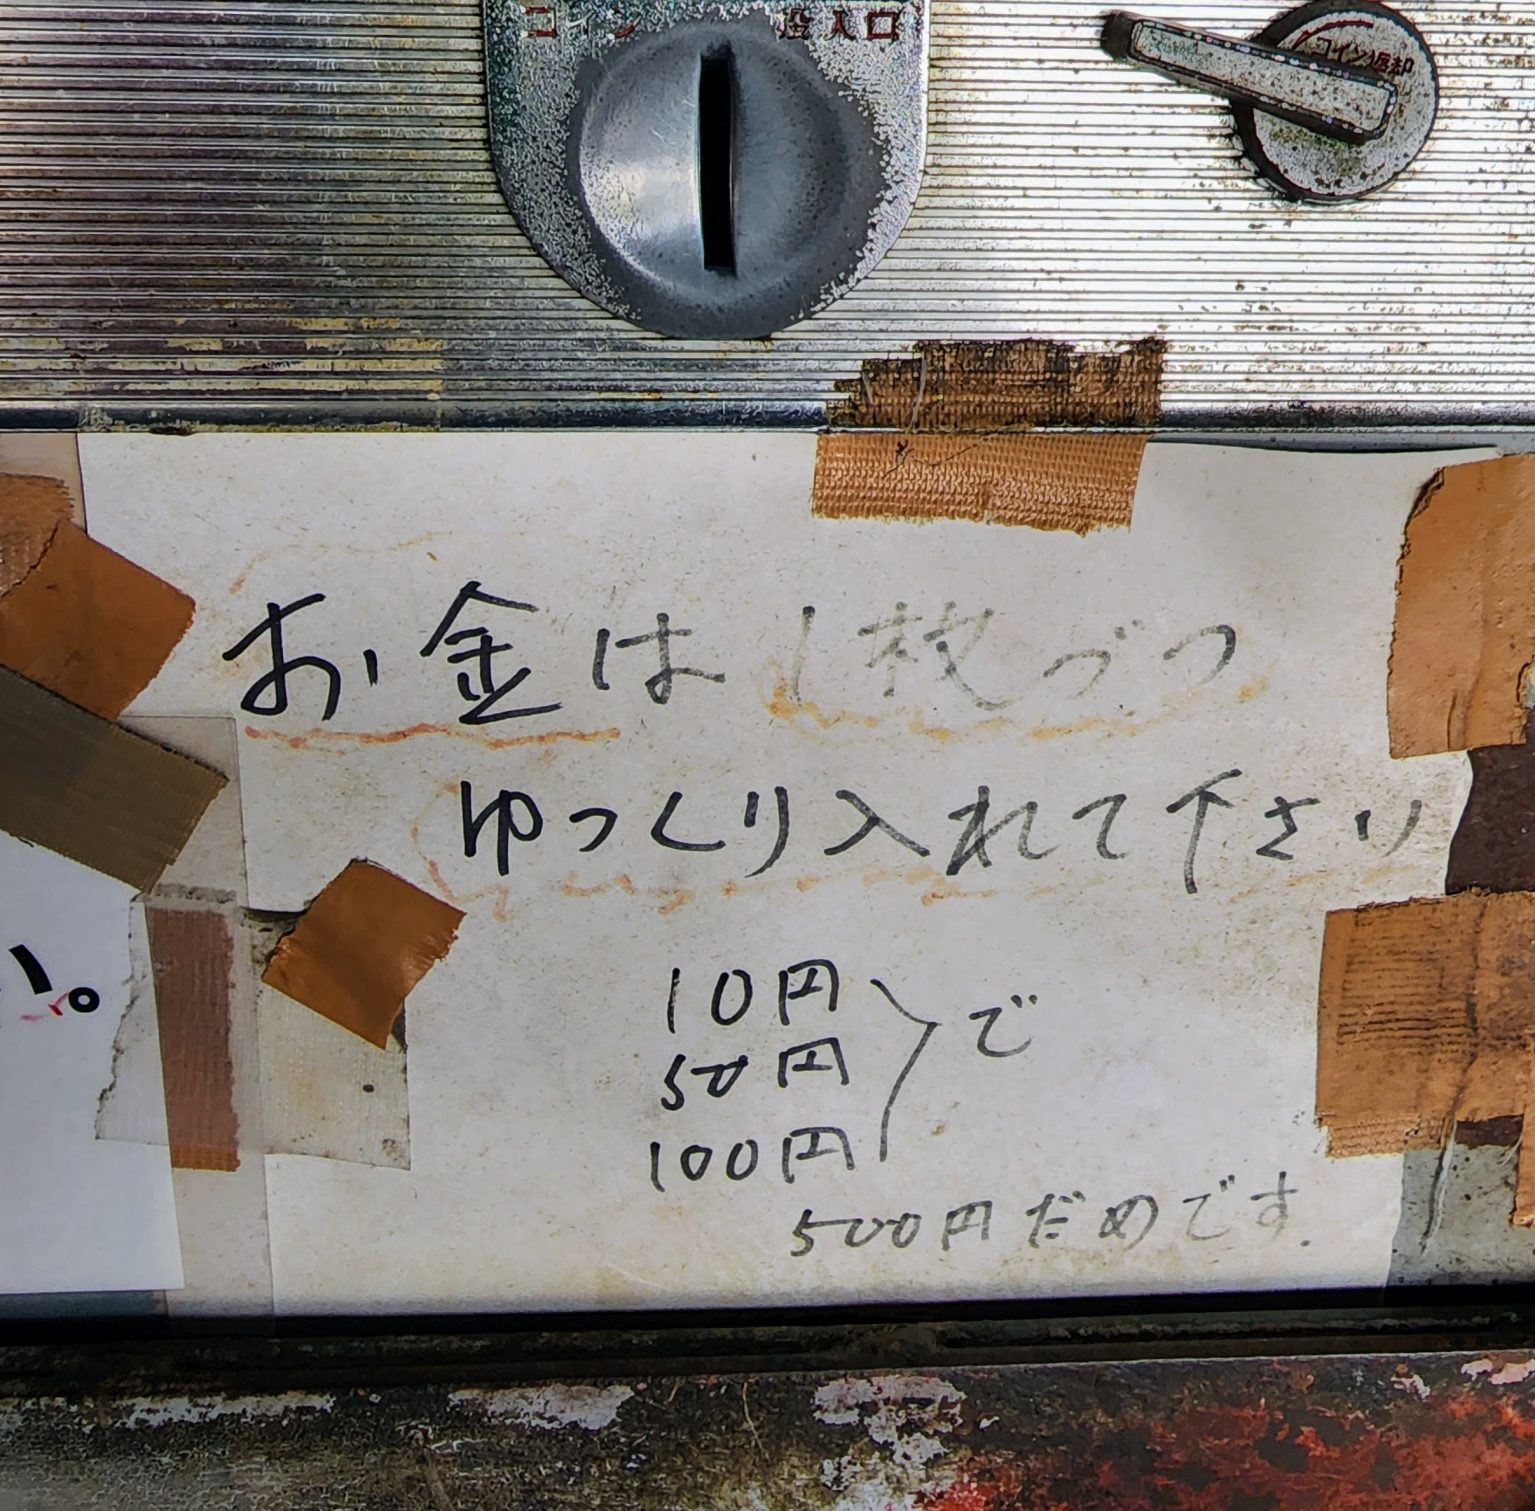 コイン 投入口
コイン返却
お金は1枚づつ
ゆっくり入れて下さい
10円
50円
100円
で
500円だめです.
い。